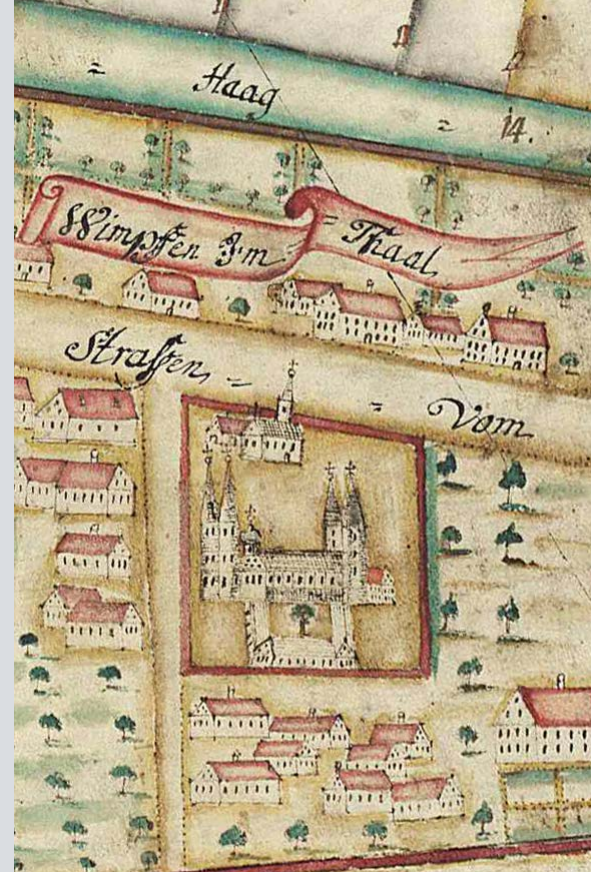 = Haag = 14.
Wimpffen Im = Thaal
Strassen, = = Vom